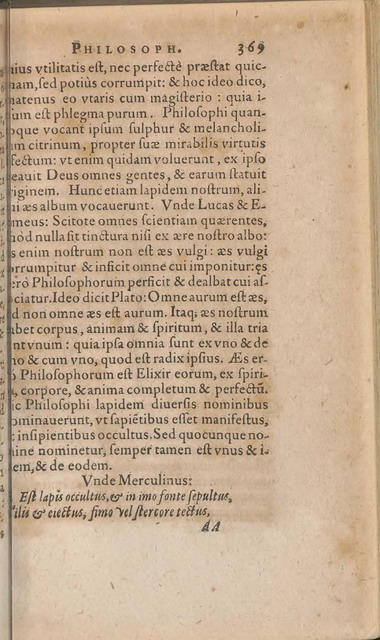 PHILOSOPH. 369
ius vtilitatis est, nec perfectè præstat quic-
nam, sed potiùs corrumpit: & hoc ideo dico,
uatenus eo vtaris cum magisterio : quia i-
um est phlegma purum. Philosophi quan-
oque vocant ipsum sulphur & melancholi-
m citrinum, propter suæ mirabilis virtutis
fectum: vt enim quidam voluerunt, ex ipso
eauit Deus omnes gentes, & earum statuit
iginem. Hunc etiam lapidem nostrum, ali-
i æs album vocauerunt. Vnde Lucas & E-
meus: Scitote omnes scientiam quærentes,
òd nulla sit tinctura nisi ex ære nostro albo:
s enim nostrum non est æs vulgi: æs vulgi
rrumpitur & inficit omne cui imponitur: ęs
erò Philosophorum perficit & dealbat cui as-
ciatur. Ideo dicit Plato: Omne aurum est æs,
d non omne æs est aurum. Itaq; æs nostrum
bet corpus, animam & spiritum, & illa tria
nt vnum : quia ipsa omnia sunt ex vno & de
no & cum vno, quod est radix ipsius. Æs er-
ò Philosophorum est Elixir eorum, ex spiri-
, corpore, & anima completum & perfectū.
ic Philosophi lapidem diuersis nominibus
ominauerunt, vt sapiētibus esset manifestus,
insipientibus occultus. Sed quocunque no-
ine nominetur, semper tamen est vnus & i-
em, & de eodem.
Vnde Merculinus:
Est lapis occultus, & in imo fonte sepultus,
ilis & eiectus, fimo vel stercore tectus,
AA